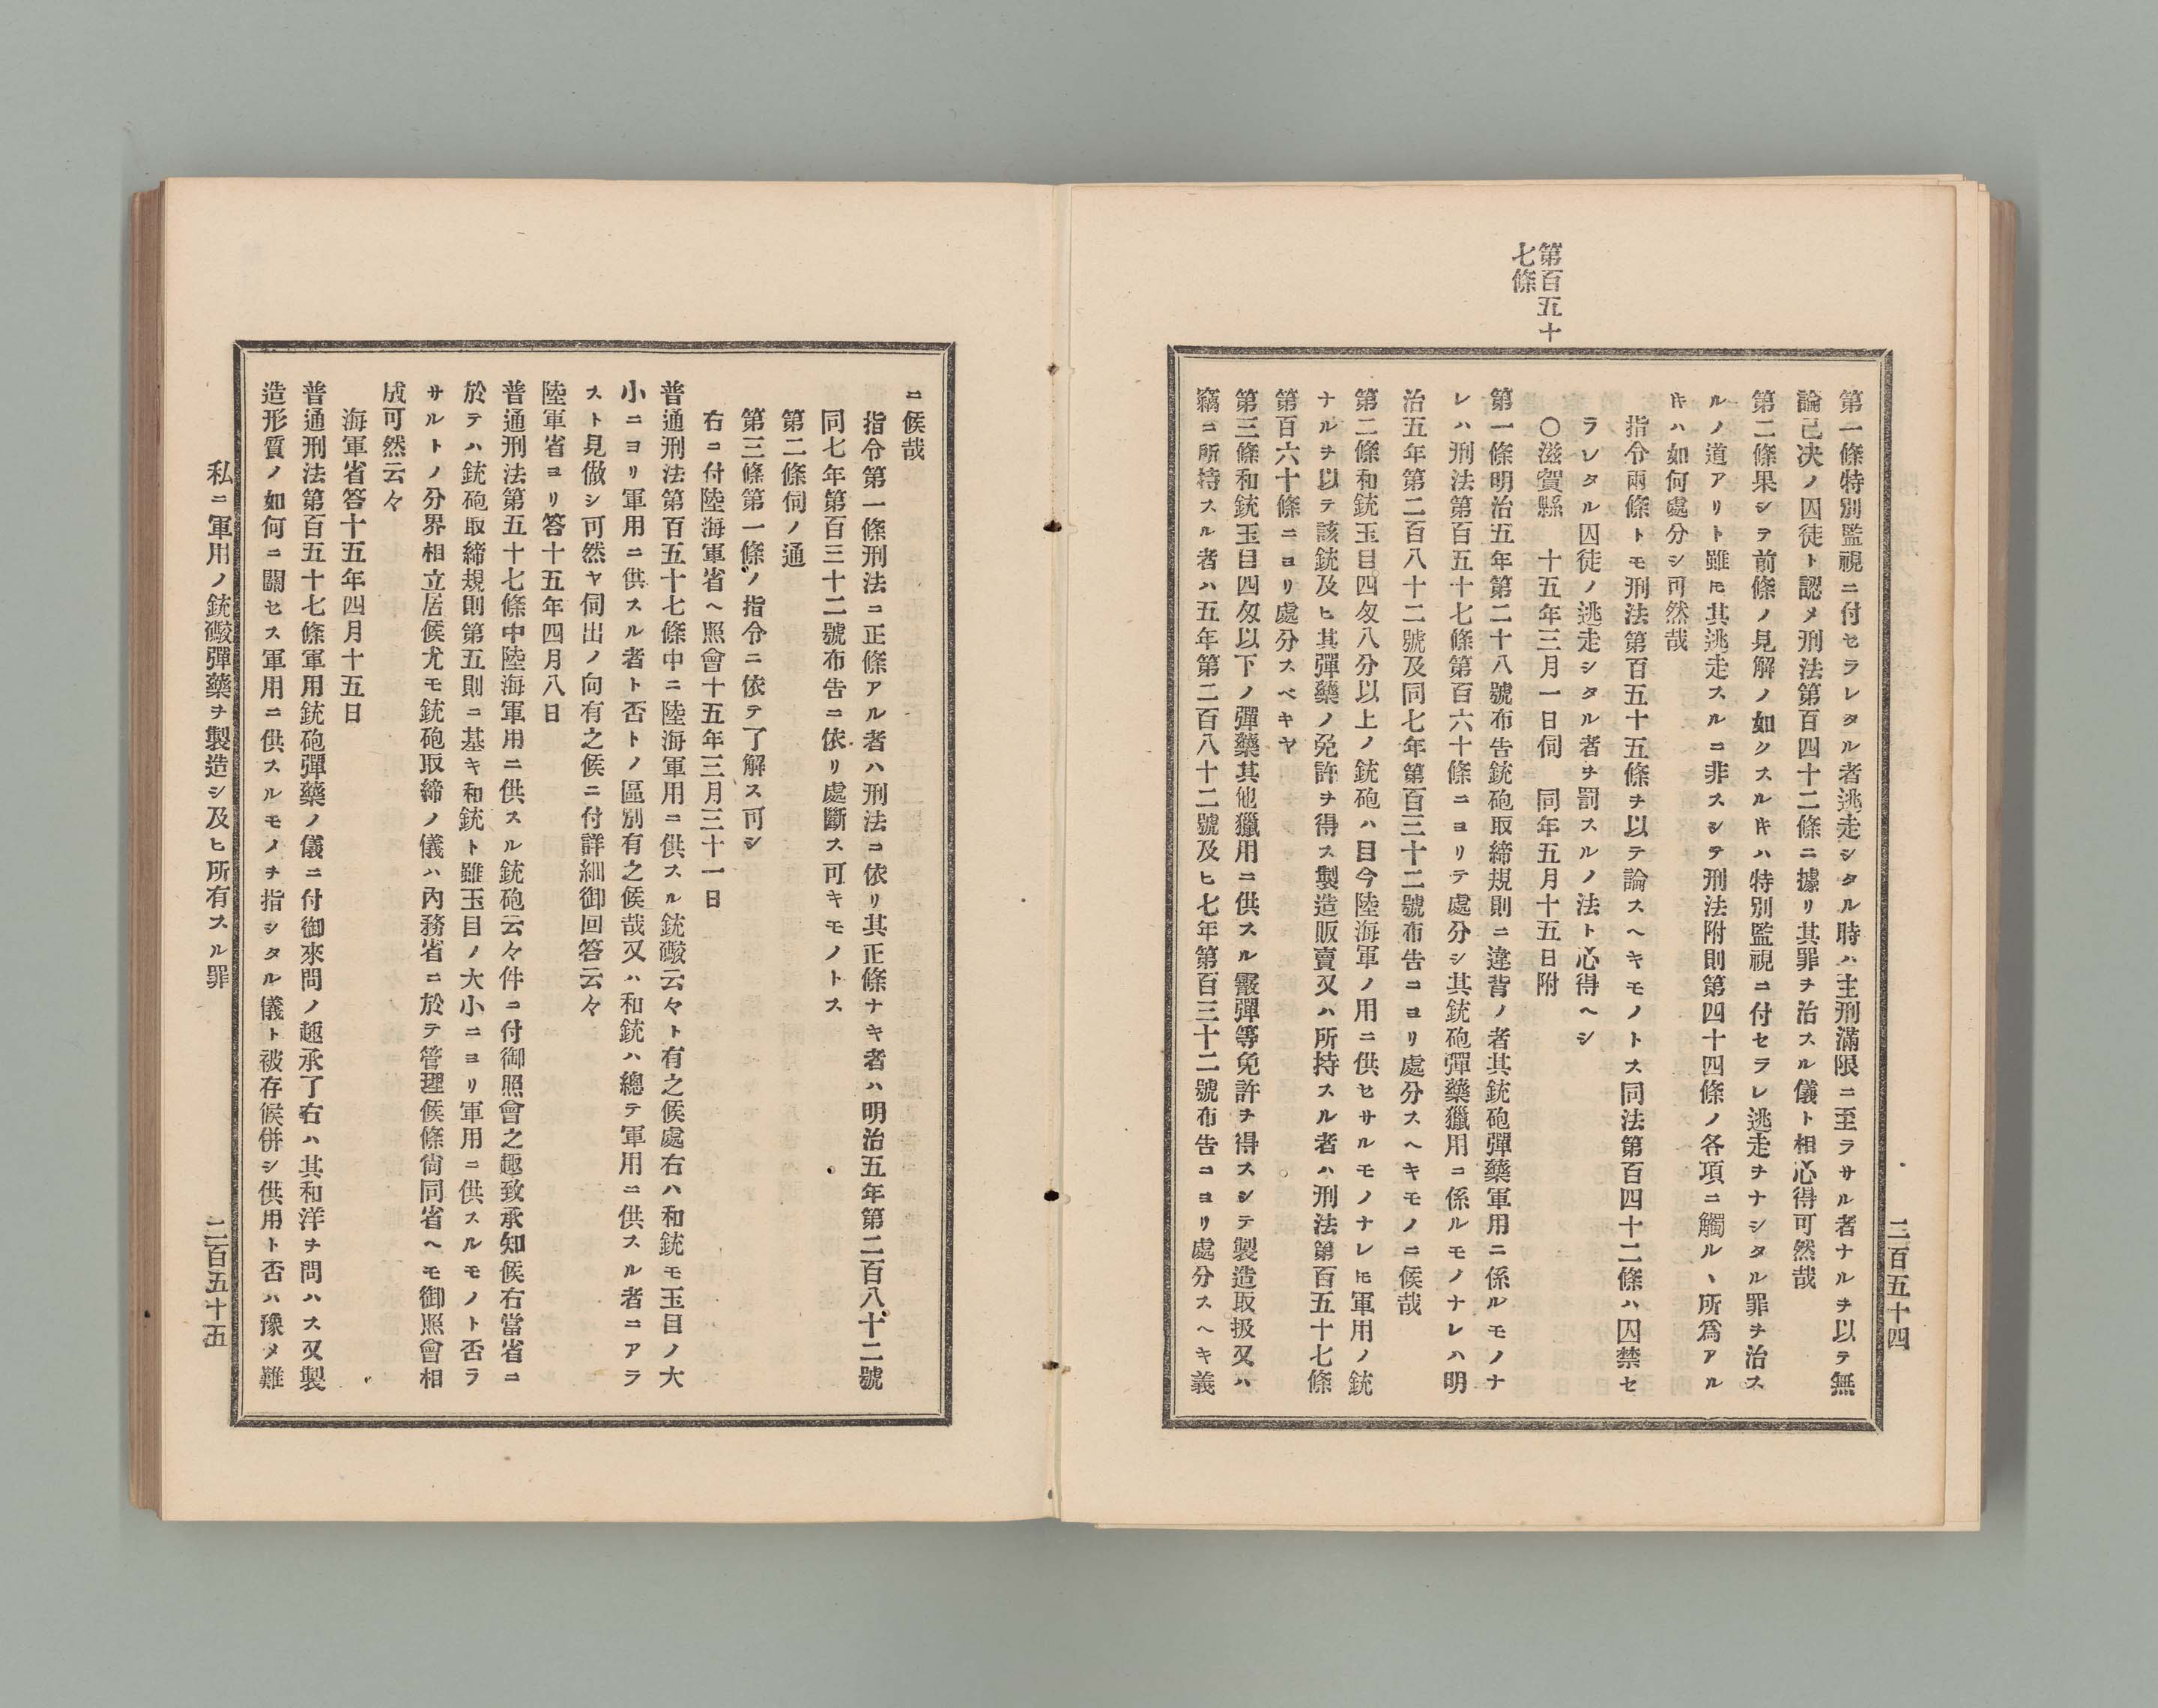 三百五十四
第百五十
七條
第一條特別監視ニ付セラレタル者逃走シタル時ハ主刑滿限ニ至ラサル者ナルヲ以テ無
論已決ノ囚徒ト認メ刑法第百四十二條ニ據リ其罪ヲ治スル儀ト相心得可然哉
第二條果シテ前條ノ見解ノ如クスルキハ特別監視ニ付セラレ逃走ヲナシタル罪ヲ治ス
ルノ道アリト雖モ其逃走スルニ非スシテ刑法附則第四十四條ノ各項ニ觸ルヽ所爲アル
キハ如何處分シ可然哉
指令兩條トモ刑法第百五十五條ヲ以テ論スヘキモノトス同法第百四十二條ハ囚禁セ
ラレタル囚徒ノ逃走シタル者ヲ罰スルノ法ト心得ヘシ
〇滋賀縣 十五年三月一日伺 同年五月十五日附
第一條明治五年第二十八號布告銃砲取締規則ニ違背ノ者其銃砲彈藥軍用ニ係ルモノナ
レハ刑法第百五十七條第百六十條ニヨリテ處分シ其銃砲彈藥獵用ニ係ルモノナレハ明
治五年第二百八十二號及同七年第百三十二號布告ニヨリ處分スヘキモノニ候哉
第二條和銃玉目四匁八分以上ノ銃砲ハ目今陸海軍ノ用ニ供セサルモノナレ𪜈軍用ノ銃
ナルヲ以テ該銃及ヒ其彈藥ノ免許ヲ得ス製造販賣又ハ所持スル者ハ刑法第百五十七條
第百六十條ニヨリ處分スベキヤ
第三條和銃玉目四匁以下ノ彈藥其他獵用ニ供スル霰彈等免許ヲ得スシテ製造取扱又ハ
竊ニ所持スル者ハ五年第二百八十二號及ヒ七年第百三十二號布告ニヨリ處分スヘキ義
ニ候哉
指令第一條刑法ニ正條アル者ハ刑法ニ依リ其正條ナキ者ハ明治五年第二百八十二號
同七年第百三十二號布告ニ依リ處斷ス可キモノトス
第二條伺ノ通
第三條第一條ノ指令ニ依テ了解ス可シ
右ニ付陸海軍省ヘ照會十五年三月三十一日
普通刑法第百五十七條中ニ陸海軍用ニ供スル銃礮云々ト有之候處右ハ和銃モ玉目ノ大
小ニヨリ軍用ニ供スル者ト否トノ區別有之候哉又ハ和銃ハ總テ軍用ニ供スル者ニアラ
スト見做シ可然ヤ伺出ノ向有之候ニ付詳細御回答云々
陸軍省ヨリ答十五年四月八日
普通刑法第五十七條中陸海軍用ニ供スル銃砲云々件ニ付御照會之趣致承知候右當省ニ
於テハ銃砲取締規則第五則ニ基キ和銃ト雖玉目ノ大小ニヨリ軍用ニ供スルモノト否ラ
サルトノ分界相立居候尤モ銃砲取締ノ儀ハ內務省ニ於テ管理候條尙同省ヘモ御照會相
成可然云々
海軍省答十五年四月十五日
普通刑法第百五十七條軍用銃砲彈藥ノ儀ニ付御來問ノ趣承了右ハ其和洋ヲ問ハス又製
造形質ノ如何ニ關セス軍用ニ供スルモノヲ指シタル儀ト被存候併シ供用ト否ハ豫メ難
私ニ軍用ノ銃礮彈藥ヲ製造シ及ヒ所有スル罪
二百五十五